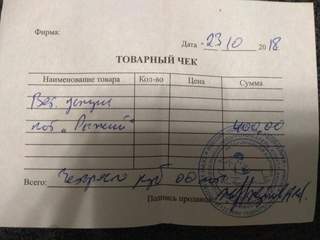 Фирма:
Дата 23 10 2018
ТОВАРНЫЙ ЧЕК
Наименование товара Кол-во Цена Сумма
Вет. услуги
кот „Рыжий" 400,00
Всего: Четыреста руб 00 коп
Подпись продавца